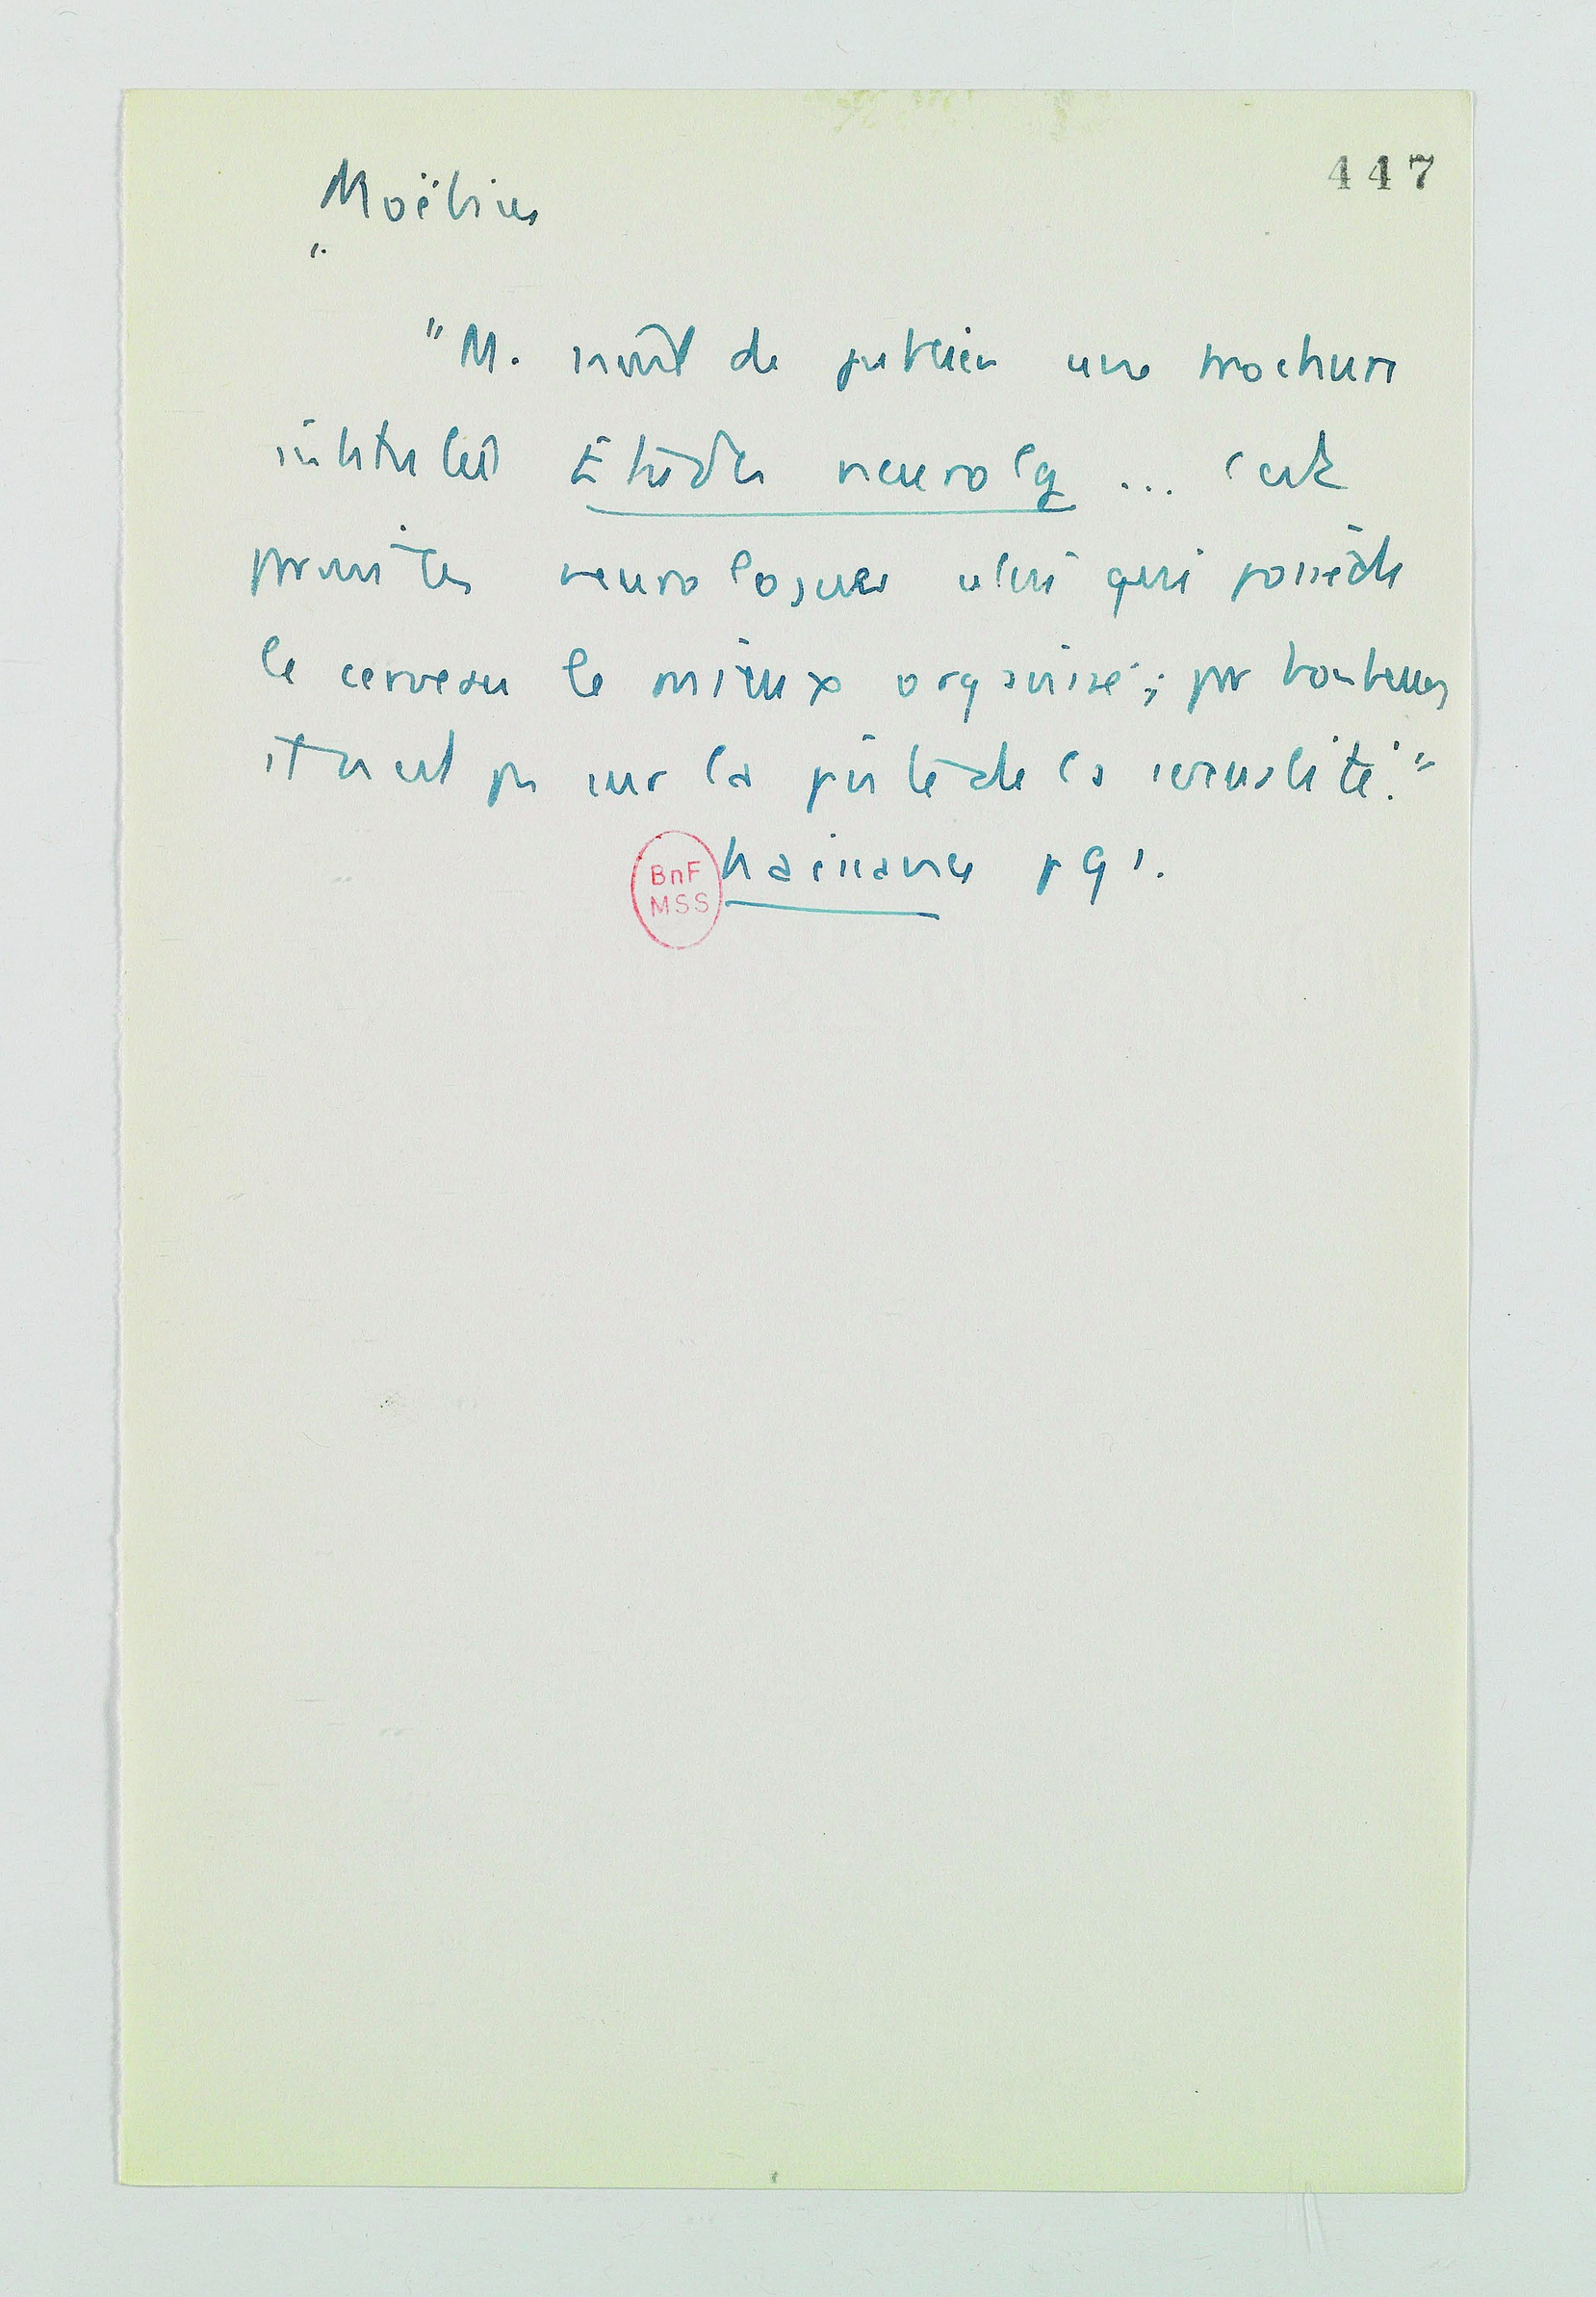 447
Moëbius
"
"M. vient de publier une brochure
intitulée Études neurolq ... c'est
parmi les neurologues celui qui possède
le cerveau le mieux organisé ; par bonheur
il n'est pas sur la piste de la sexualité."
BnF
MSS
Naissance p 91.